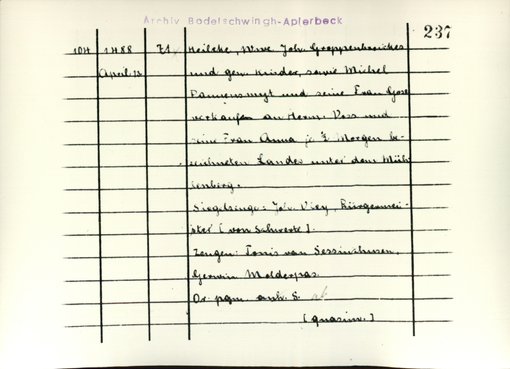 Archiv Bodelschwingh-Aplerbeck
237
104 1488 71 Heileke, Wwe Joh. Groppenbroickes
April 13 und gen. Kinder, sowie Michel
und seine Frau Gose
verkaufen an Herm. Voss und
seine Frau Anna je ½ Morgen be-
zeichneten Landes unter dem Müh-
lenberg.
Siegelzeuge: Joh. Bürgermei-
ster [von Schwerte].
Zeugen: Tonis van Sessinghusen,
Gerwin Molderpas.
Or. pgm. anh. S. ab
[quasim.]